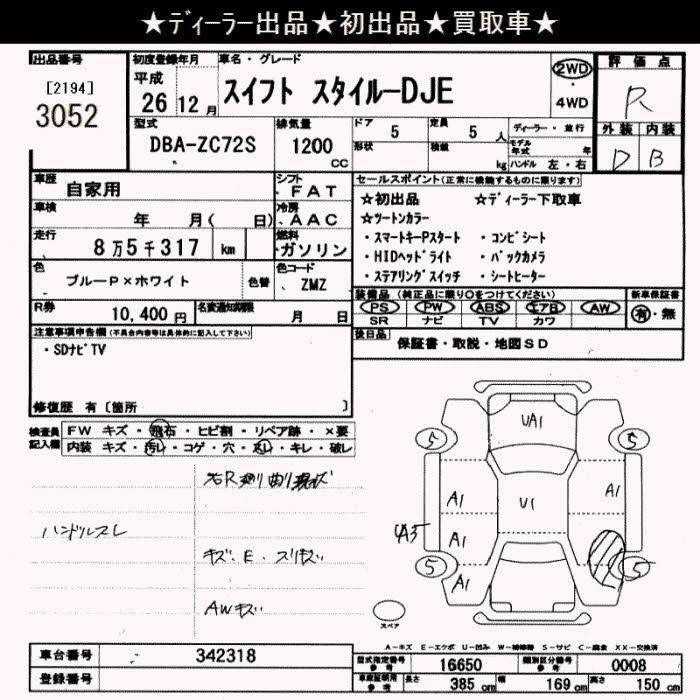 ★ディーラー出品★初出品★買取車★
出品番号
[2194]
3052
初度登録年月
平成
26 12月
車名・グレード
スイフト スタイルーDJE
2WD
・
4WD
評価点
R
外装 内装
D B
型式
DBA-ZC72S
排気量
1200
CC
ドア 5
定員 5 人
形状
積載 kg
ディーラー・並行
モデル年式 年
ハンドル 左・右
車歴 自家用
シフト
FAT
車検 年 月( 日)
冷房
AAC
走行 8万5千317 km
燃料
ガソリン
色
ブルーP×ホワイト
色替
色コード
ZMZ
R券
10,400円
名変通知期限
月 日
セールスポイント(正常に機能するものに限ります)
★初出品 ★ディーラー下取車
★ツートンカラー
・スマートキーPスタート ・コンビシート
・HIDヘッドライト ・バックカメラ
・ステアリングスイッチ ・シートヒーター
装備品 (純正品に限り○をつけてください)
PS PW ABS エアB AW
SR ナビ TV カワ
新車保証書
有・無
後日品
保証書・取説・地図SD
注意事項申告欄(不具合内容等は具体的に記入して下さい)
・SDナビTV
修復歴 有〔箇所 〕
検査員記入欄
FW キズ・飛石・ヒビ割・リペア跡・×要
内装 キズ・汚レ・コゲ・穴・スレ・キレ・破レ
ハンドルスレ
キズ、E・スリキズ
AWキズ
UA1
5 5
A1 U1 A1
A1
A1
5 5
スペア
A-キズ E-エクボ U-凹み W-補修跡 S-サビ C-腐食 XX-交換済
車台番号 342318
登録番号
型式指定番号
参考
16650
類別区分番号
参考
0008
車庫証明用
参考
長さ 385 cm
幅 169 cm
高さ 150 cm